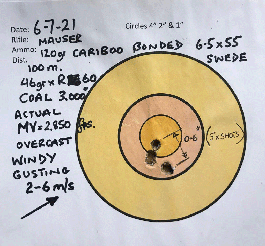 Date: 6-7-21
Circles 4" 2" & 1"
Rifle: MAUSER
Ammo: 120gr CARIBOO BONDED 6.5x55
SWEDE
Dist. 100m.
46gr x R 60
COAL 3.000"
ACTUAL
MV=2,850 fps.
OVERCAST
WINDY
GUSTING
2-6 m/s
0-6"
(5 x SHOTS)